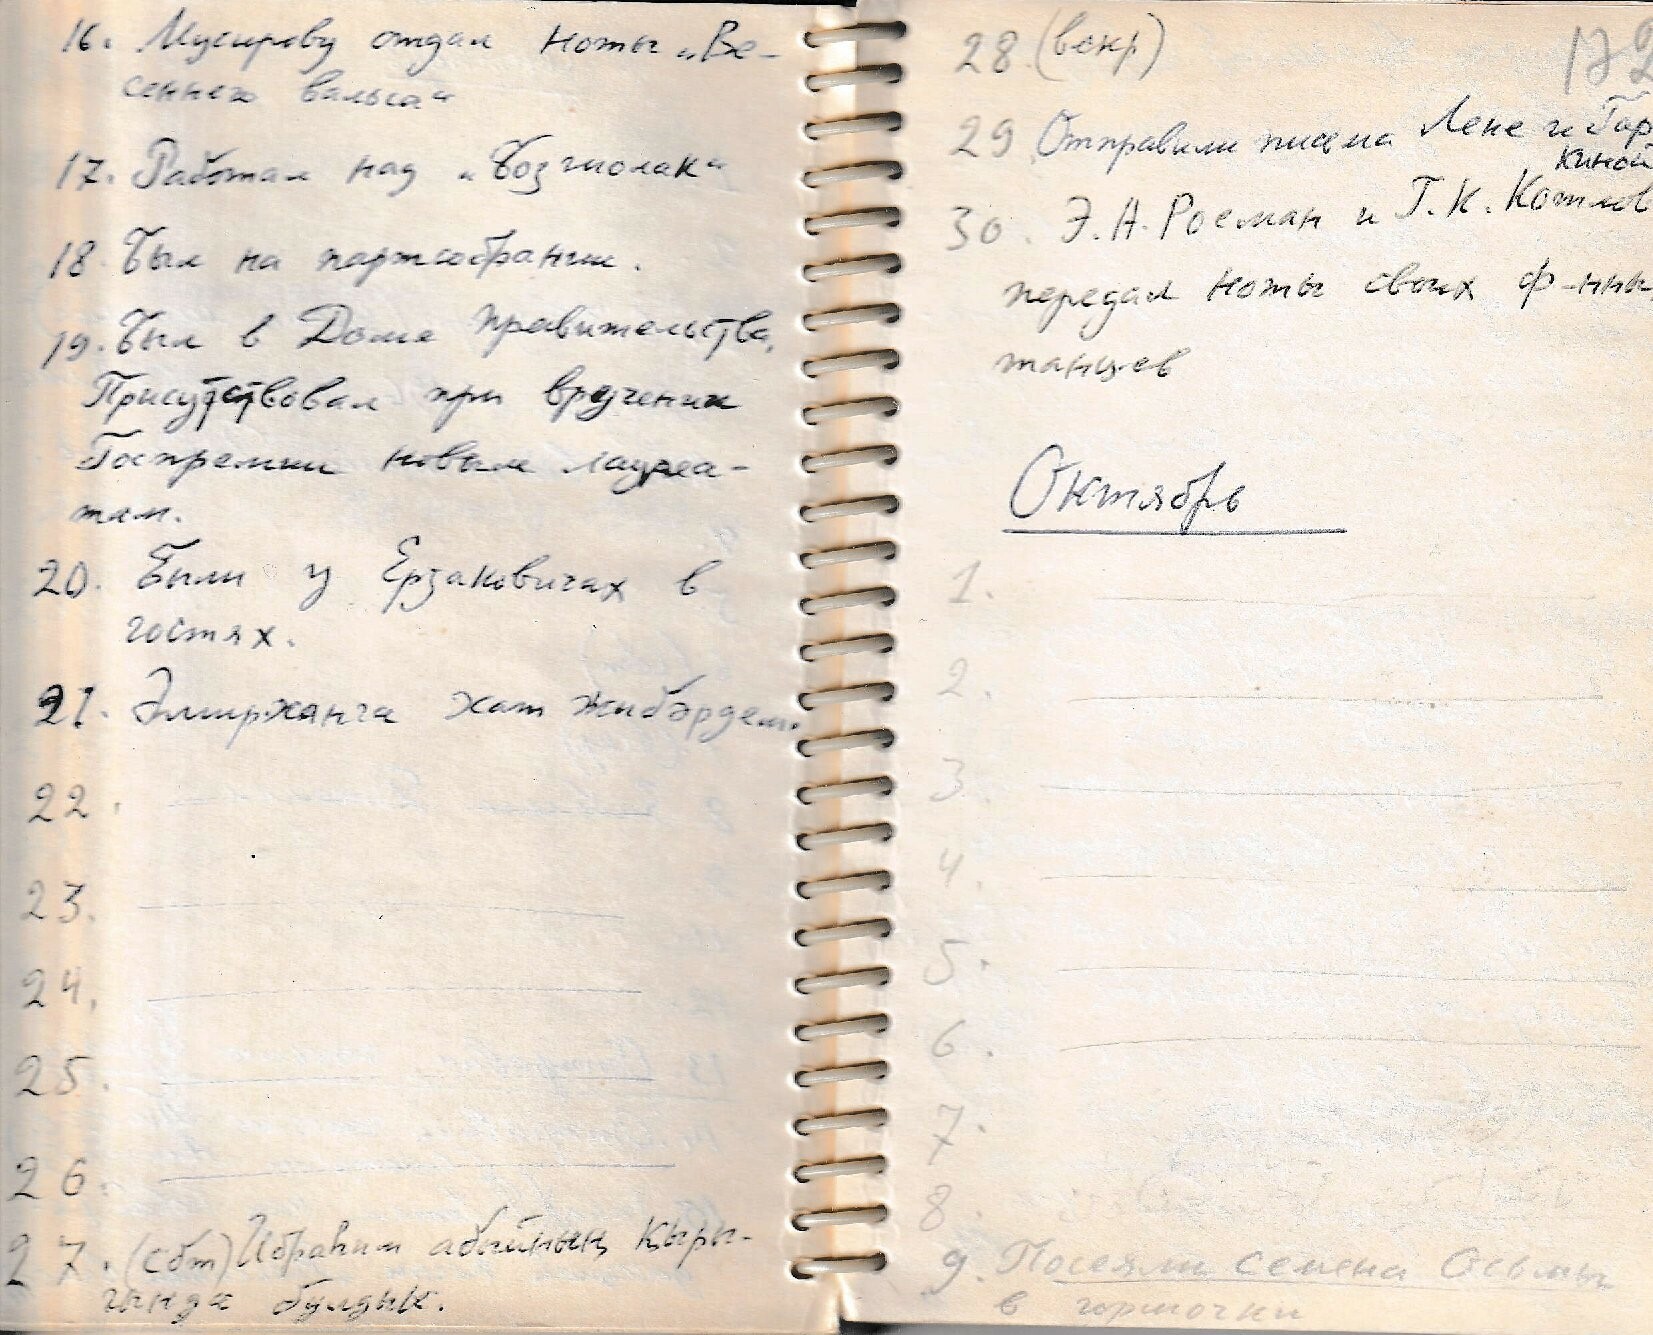 16. Мусирову отдал ноты „Ве-
сеннего вальса“
17. Работал над „Бозгиолак“
18. Был на партсобрании.
19. Был в Доме Правительства.
Присутствовал при вручении
Госпремии новым лауреа-
там.
20. Были у Ерзаковичах в
гостях.
21. Әмирханга хат жибәрдем.
22.
23.
24.
25.
26.
27. (сбт) Ибраһим абыйның Қыры-
гында булдык.
172
28 (вскр)
29 Отправили письма Лене и Гар
киной
30. Э.А. Росман и Г.К. Котлов
передал ноты своих ф-нных
танцев
Октябрь
1.
2.
3.
4.
5.
6.
7.
8.
9. Посеяли семена
в горшочки